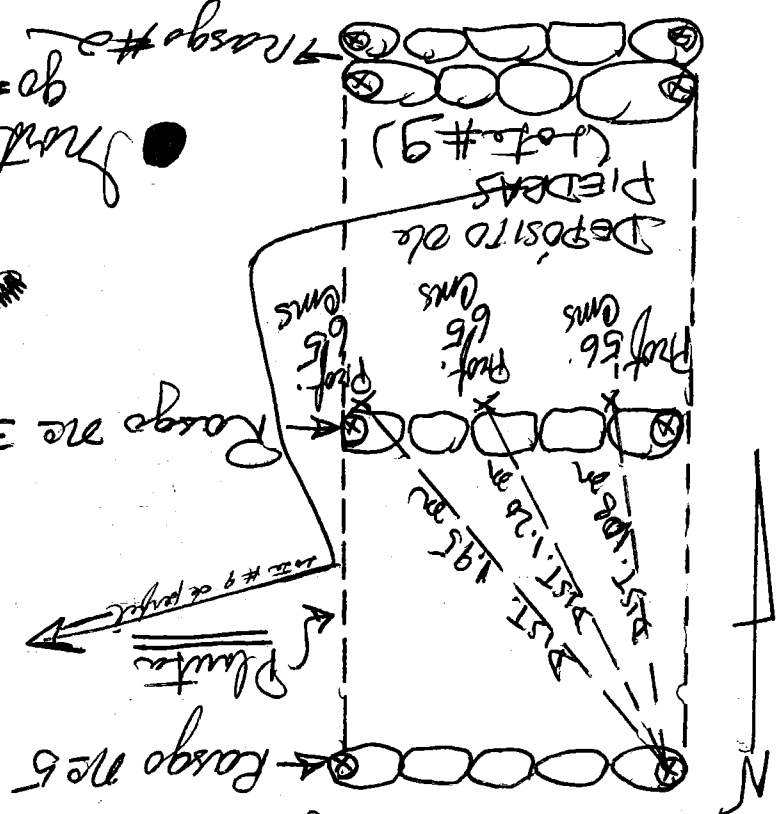 N
Rasgo no 5
Planta
Lote # 9 de perfil
DIST.
DIST. 1.20 m
DIST. 1.95 m
Rasgo no
Prof. 56 cms
Prof. 65 cms
Prof. 65 cms
DEPÓSITO de
PIEDRAS
(Lote # 9)
Rasgo # 2